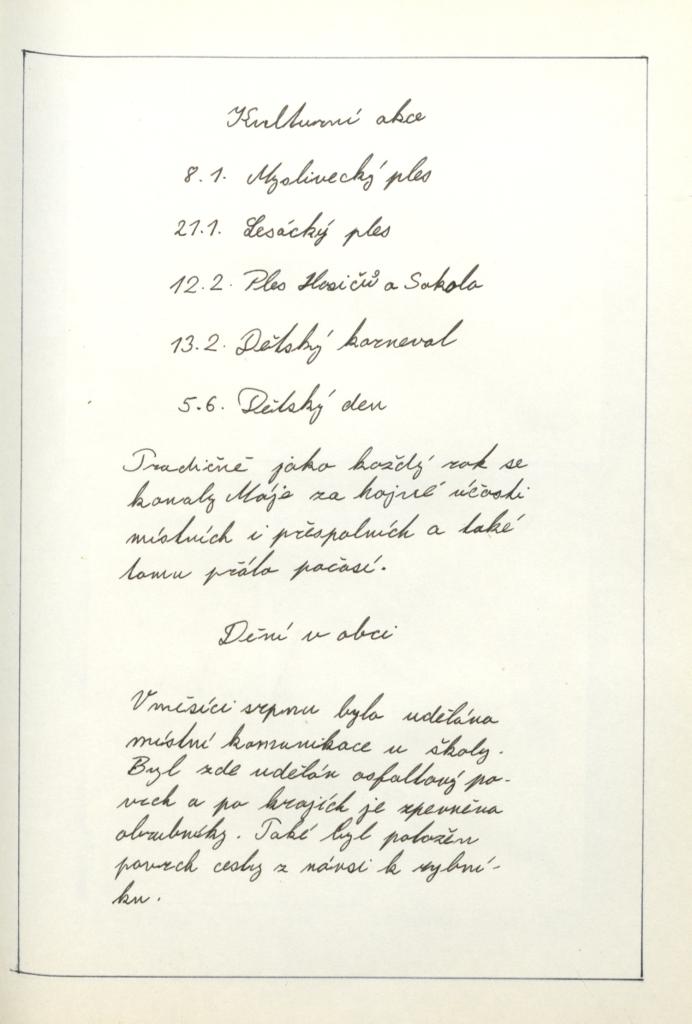 Kulturní akce
8.1. Myslivecký ples
21.1. Lesácký ples
12.2. Ples Hasičů a Sokola
13.2. Dětský karneval
5.6. Dětský den
Tradičně jako každý rok se
konaly Máje za hojné účasti
místních i přespolních a také
tomu přálo počasí.
Dění v obci
V měsíci srpnu byla udělána
místní komunikace u školy.
Byl zde udělán asfaltový po-
vrch a po krajích je zpevněna
obrubníky. Také byl položen
povrch cesty z návsi k rybní-
ku.